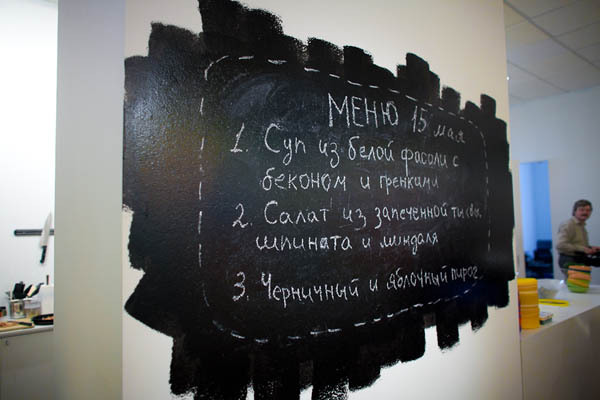 МЕНЮ 15 мая
1. Суп из белой фасоли с
беконом и гренками
2. Салат из запеченной тыквы
шпината и миндаля
3. Черничный и яблочный пирог